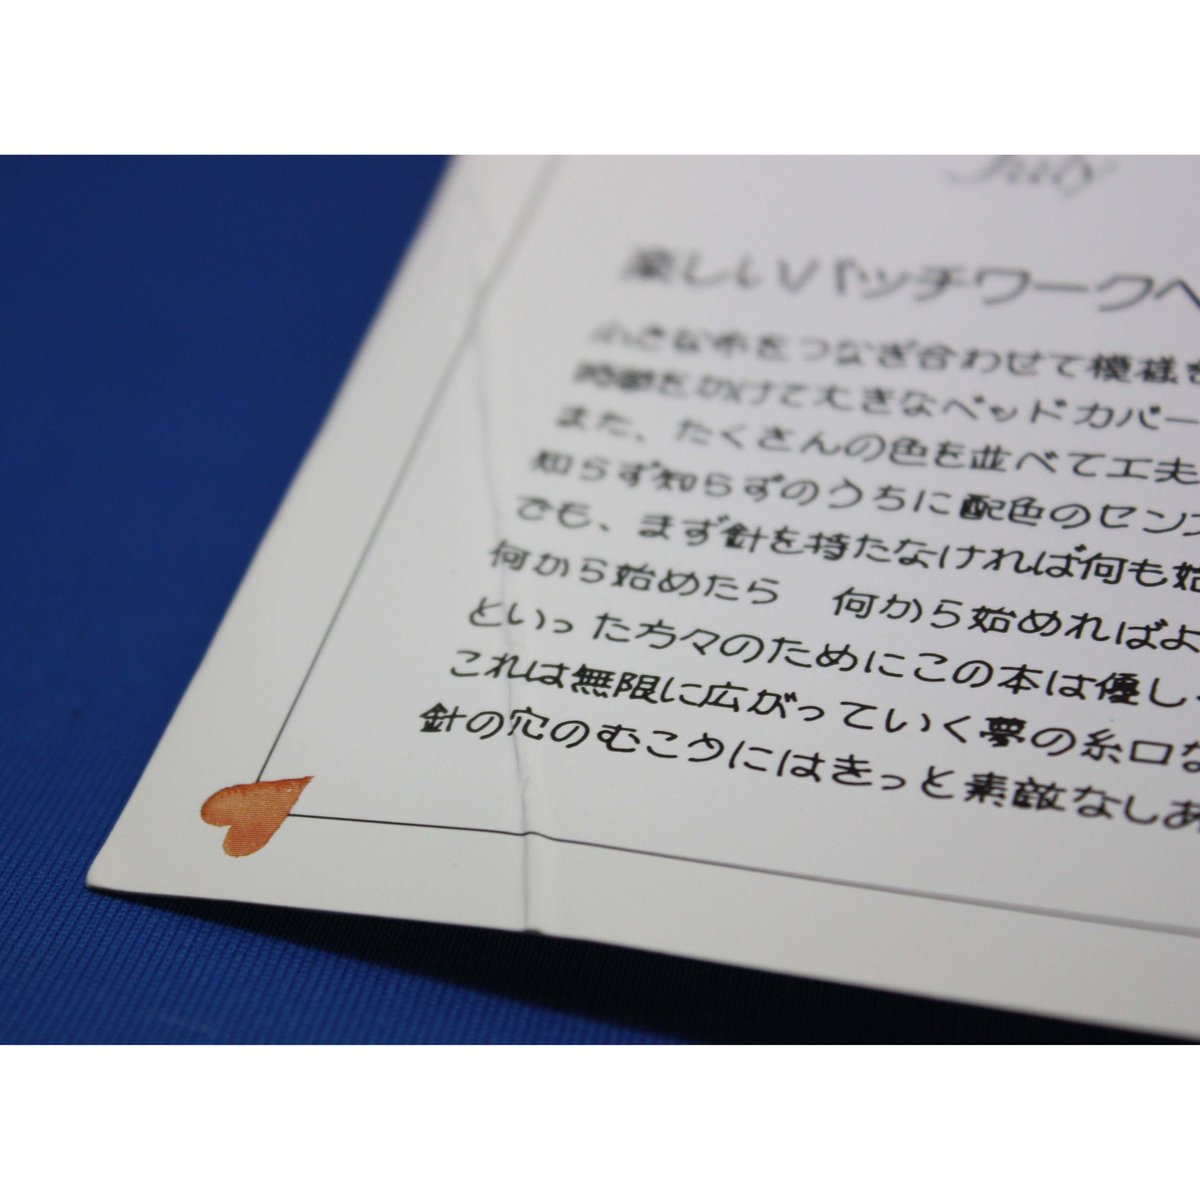 July
楽しいパッチワークへ
小さな布をつなぎ合わせて模様を
時間をかけて大きなベッドカバー
また、たくさんの色を並べて工夫
知らず知らずのうちに配色のセンス
でも、まず針を持たなければ何も始
何から始めたら　何から始めればよ
といった方々のためにこの本は優し
これは無限に広がっていく夢の糸口な
針の穴のむこうにはきっと素敵なしあ